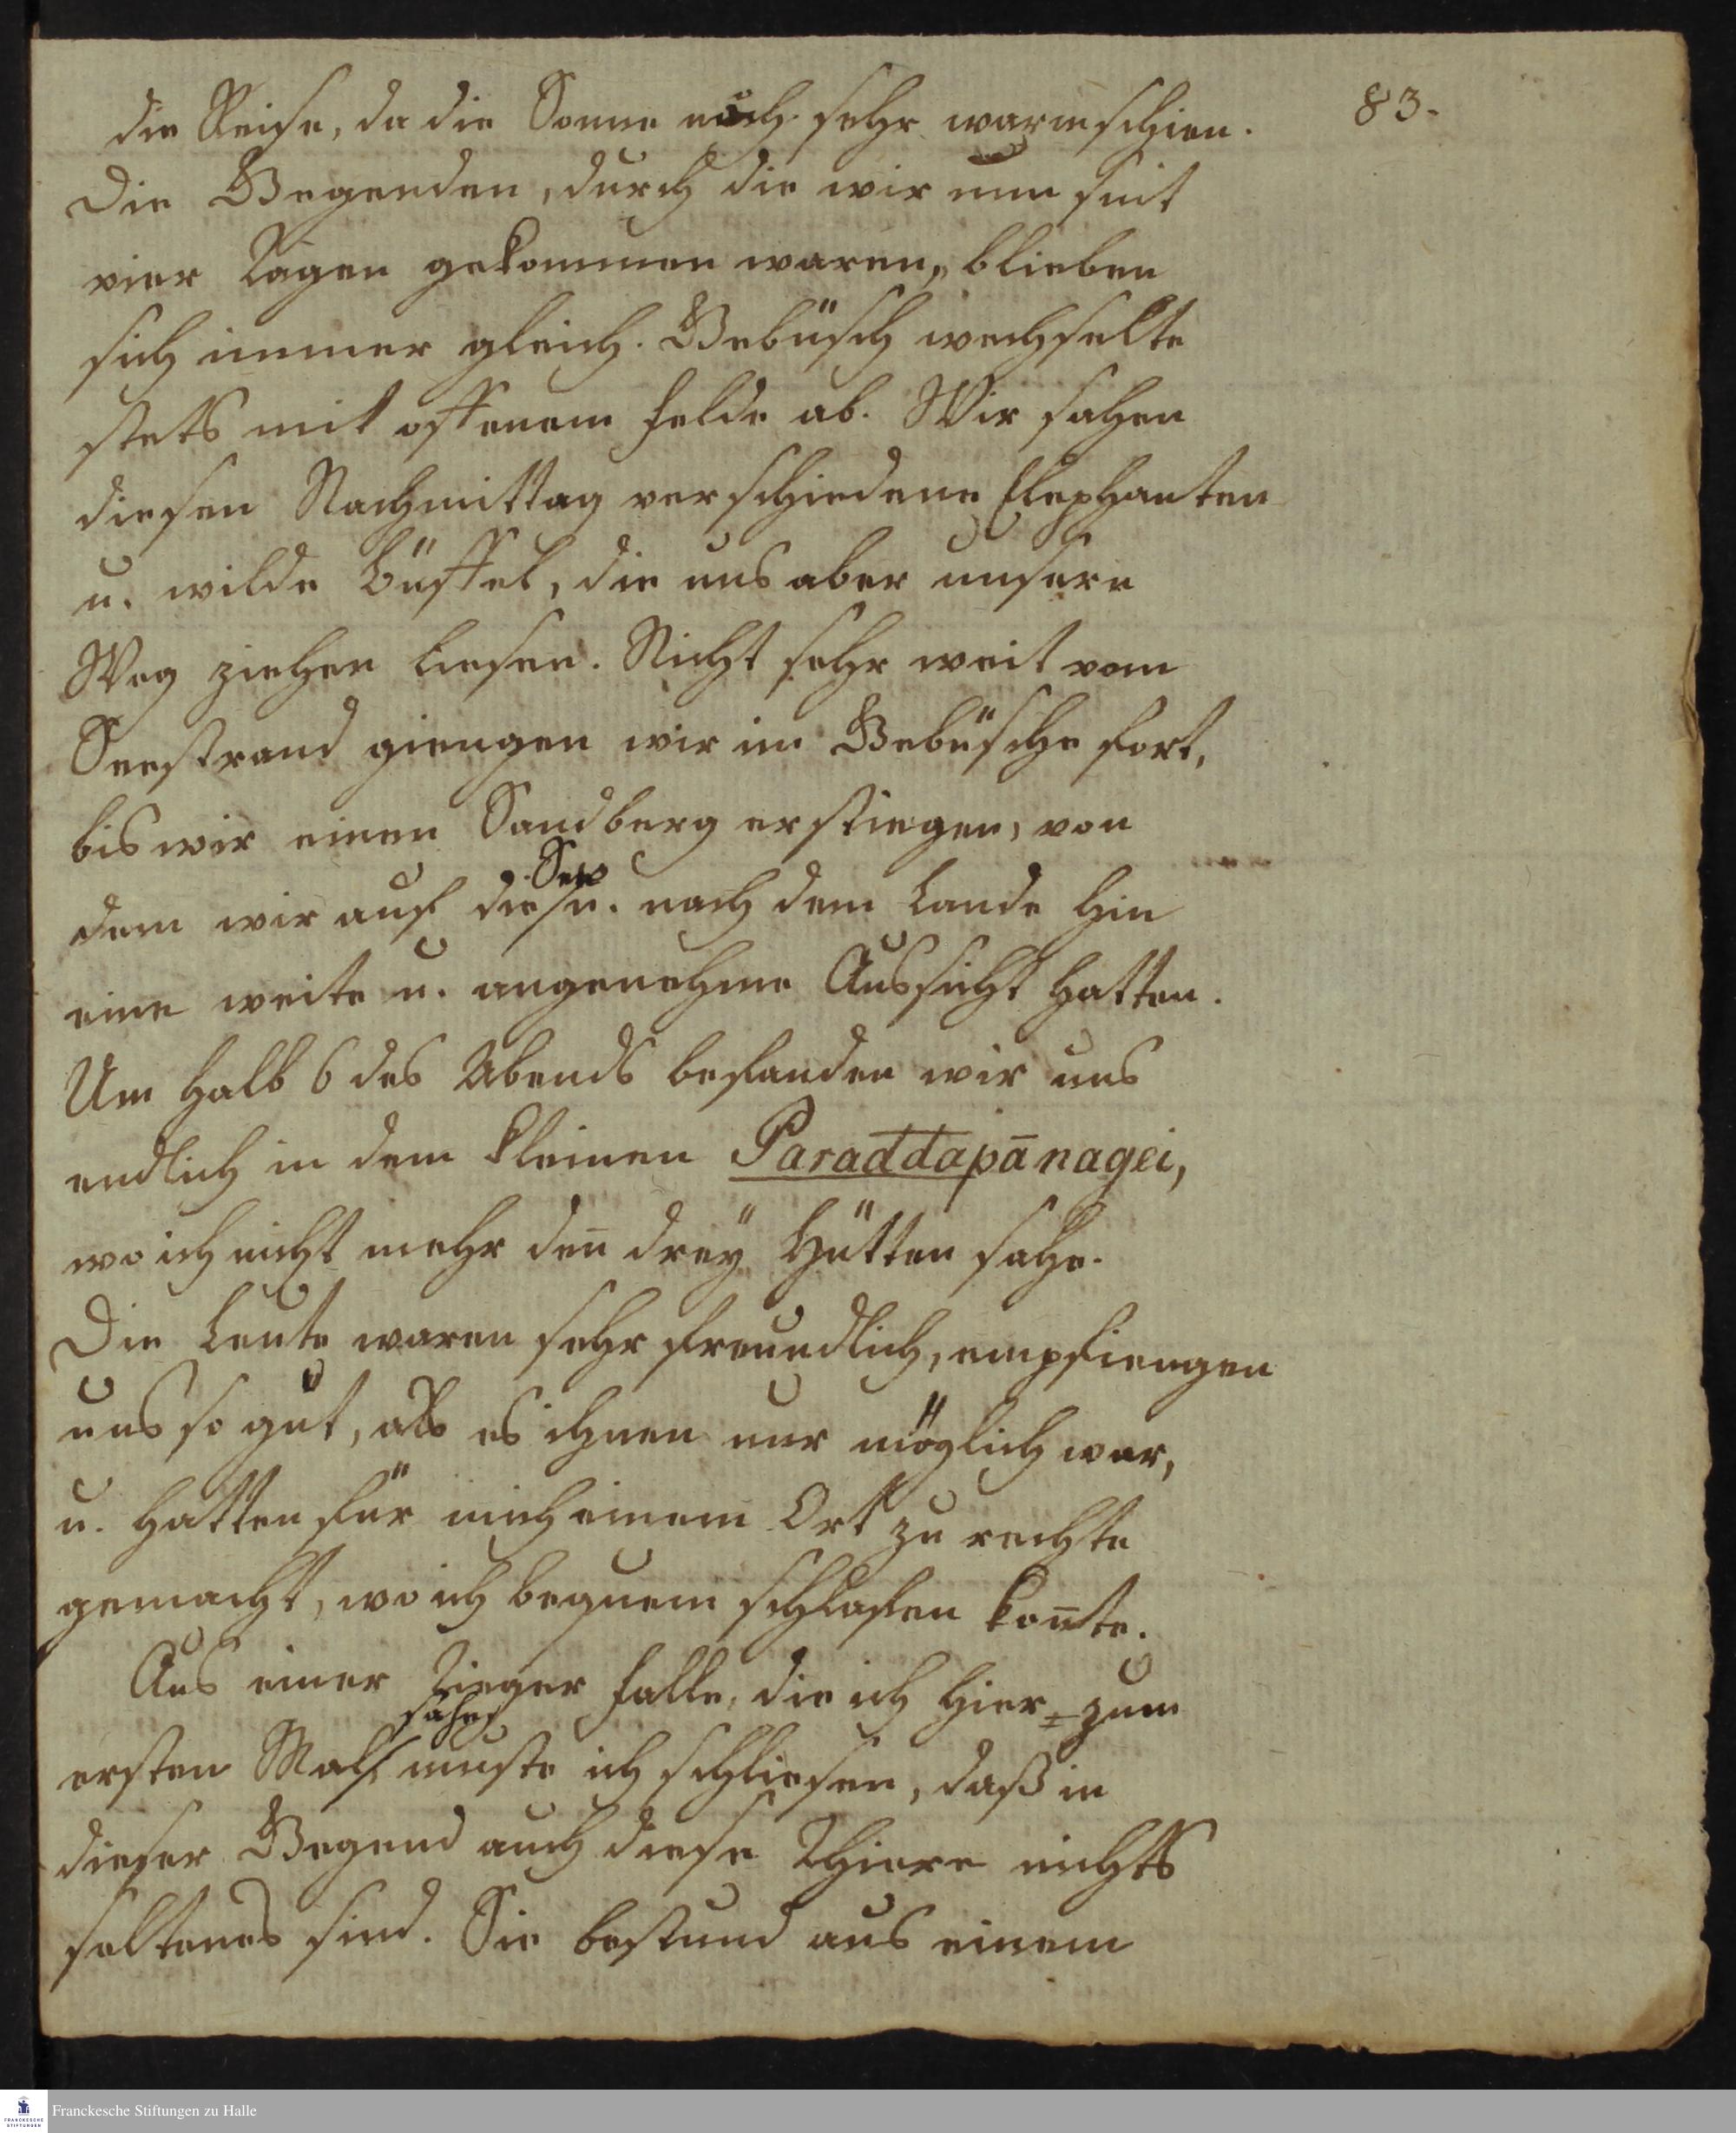 83.
die Reise, da die Sonne noch sehr warm schien.
Die Gegenden, durch die wir nun seit
vier Tagen gekommen waren, blieben
sich immer gleich. Gebüsch wechselte
stets mit offenem Felde ab. Wir sahen
diesen Nachmittag verschiedene Elephanten
u. wilde Büffel, die uns aber unsere
Weg ziehen liesen. Nicht sehr weit vom
Seestrand giengen wir im Gebüsche fort,
bis wir einen Sandberg erstiegen, von
See
dem wir auf die u. nach dem Lande hin
eine weite u. angenehme Aussicht hatten.
Um halb 6 des Abends befanden wir uns
endlich in dem kleinen Paraddapānagei,
wo ich nicht mehr den̄ dreÿ Hütten sahe.
Die Leute waren sehr freundlich, empfiengen
uns so gut, als es ihnen nur möglich war,
u. hatten für mich einem Ort zu rechte
gemacht, wo ich bequem schlafen kon̄te.
Aus einer Tieger falle, die ich hier zum
sahe
ersten Mal, muste ich schliesen, daß in
dieser Gegend auch diese Thiere nichts
seltenes sind. Sie bestund aus einem
Franckesche Stiftungen zu Halle